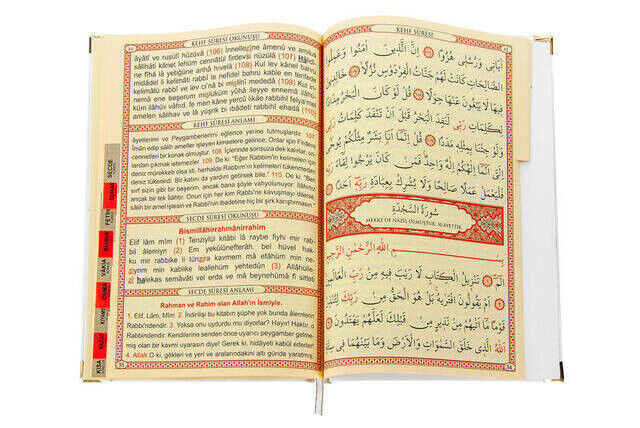 KEHF SÛRESİ OKUNUŞU
âyâtî ve rusulî hüzüvâ (106) İnnellezîne âmenû ve amilus
sâlihâti kânet lehüm cennâtül firdevsi nüzülâ (107) Hâlidî-
ne fîhâ lâ yebğûne anhâ hıvelâ (108) Kul lev kânel bahru
midâdel li kelimâti rabbî le nefidel bahru kable en tenfede
kelimâtü rabbî ve lev ci'nâ bi mislihî mededâ (109) Kul in-
nemâ ene beşerum mislüküm yûhâ ileyye ennemâ ilâhü-
küm ilâhüv vâhid, fe men kâne yercû likâe rabbihî felya'mel
amelen sâlihav ve lâ yüşrik bi ıbâdeti rabbihî ehadâ (110)
KEHF SÛRESİ ANLAMI
âyetlerimi ve Peygamberlerimi eğlence yerine tutmuşlardır. 107.
İman edip sâlih ameller işleyen kimselere gelince; Onlar için Firdevs
cennetleri bir konak olmuştur. 108. İçlerinde sonsuza dek kalırlar, on-
lardan çıkmak istemezler. 109. De ki: "Eğer Rabbimin kelimeleri için
deniz mürekkep olsa idi, herhalde Rabbimin kelimeleri tükenmeden
deniz tükenirdi. Bir katını da yardım getirsek bile." 110. De ki: "Ben
sırf sizin gibi bir beşerim, ancak bana şöyle vahyolunuyor: İlâhınız
ancak bir tek ilâhtır. Onun için her kim Rabbi'ne kavuşmayı dilerse
sâlih amel işlesin ve Rabbi'ne ibadetine hiç bir şirk karıştırmasın.
SECDE SÛRESİ OKUNUŞU
Bismillâhirrahmânirrahîm
Elif lâm mîm (1) Tenzîylül kitâbi lâ raybe fîyhi mir rab-
bil âlemiyn (2) Em yekûlûnefterâh, bel hüvel hak-
ku mir rabbike li tünzira kavmem mâ etâhüm min ne-
ziyrim min kablike leallehüm yehtedûn (3) Allâhülle-
zî halekas semâvâti vel erda ve mâ beynehümâ fî sitteti
SECDE SÛRESİ ANLAMI
Rahman ve Rahim olan Allah'ın İsmiyle.
1. Elif, Lâm, Mîm. 2. İndirilişi bu kitabın şüphe yok bunda âlemlerin
Rabbi'ndendir. 3. Yoksa onu uydurdu mu diyorlar? Hayır! Haktır, o
Rabbindendir. Kendilerine senden önce uyarıcı peygamber gelme-
miş olan bir kavmi uyarasın diye! Gerek ki, hidâyeti kabûl ederler!
4. Allah O ki, gökleri ve yeri ve aralarındakini altı günde yaratmış,
SECDE
DUHAN
FETİH
RAHMAN
VAKIA
CUMA
KIYAME
KISA
KEHF SÛRESİ
آيَاتِي وَرُسُلِي هُزُوًا ﴿١٠٦﴾ اِنَّ الَّذِينَ اٰمَنُوا وَعَمِلُوا
الصَّالِحَاتِ كَانَتْ لَهُمْ جَنَّاتُ الْفِرْدَوْسِ نُزُلًا ﴿١٠٧﴾ خَالِدِينَ
فِيهَا لَا يَبْغُونَ عَنْهَا حِوَلًا ﴿١٠٨﴾ قُلْ لَوْ كَانَ الْبَحْرُ مِدَادًا
لِكَلِمَاتِ رَبِّي لَنَفِدَ الْبَحْرُ قَبْلَ اَنْ تَنْفَدَ كَلِمَاتُ رَبِّي
وَلَوْ جِئْنَا بِمِثْلِهِ مَدَدًا ﴿١٠٩﴾ قُلْ اِنَّمَا اَنَا بَشَرٌ مِثْلُكُمْ يُوحٰى
اِلَيَّ اَنَّمَا اِلٰهُكُمْ اِلٰهٌ وَاحِدٌ فَمَنْ كَانَ يَرْجُوا لِقَاءَ رَبِّهِ
فَلْيَعْمَلْ عَمَلًا صَالِحًا وَلَا يُشْرِكْ بِعِبَادَةِ رَبِّهِ اَحَدًا ﴿١١٠﴾
سُورَةُ السَّجْدَةِ
MEKKE'DE NAZİL OLMUŞTUR. 30 AYETTİR.
بِسْمِ اللّٰهِ الرَّحْمٰنِ الرَّحِيمِ
الٓمٓ ﴿١﴾ تَنْزِيلُ الْكِتَابِ لَا رَيْبَ فِيهِ مِنْ رَبِّ الْعَالَمِينَ ﴿٢﴾
اَمْ يَقُولُونَ افْتَرٰيهُ بَلْ هُوَ الْحَقُّ مِنْ رَبِّكَ لِتُنْذِرَ
قَوْمًا مَا اَتٰيهُمْ مِنْ نَذِيرٍ مِنْ قَبْلِكَ لَعَلَّهُمْ يَهْتَدُونَ ﴿٣﴾
اَللّٰهُ الَّذِي خَلَقَ السَّمٰوَاتِ وَالْاَرْضَ وَمَا بَيْنَهُمَا فِي